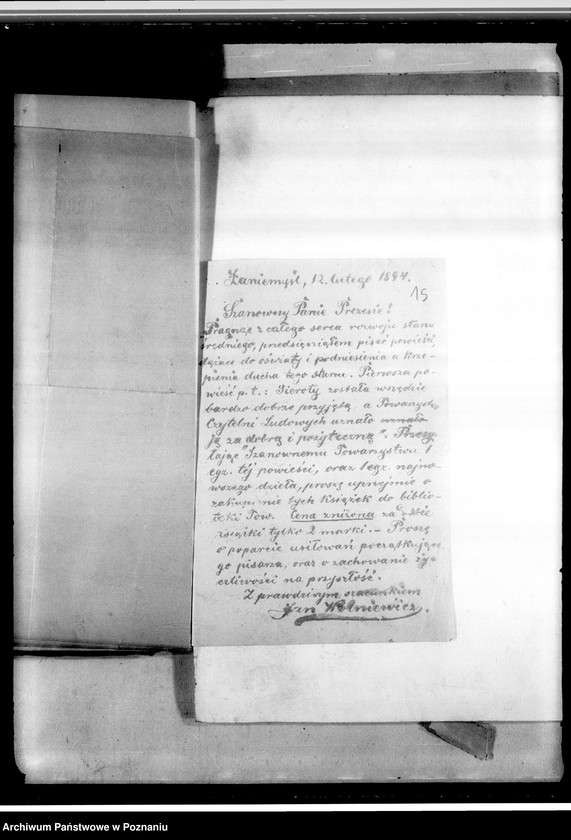 Zaniemyśl, 12. lutego 1894.
15
Szanowny Panie Prezesie!
Pragnąc z całego serca rozwoju stanu
średniego, przedsięwziąłem pisać powieści,
dążące do oświaty i podniesienia a krze-
pienia ducha tego stanu. Pierwsza po-
wieść p. t.: Sieroty została wszędzie
bardzo dobrze przyjętą, a Towarzystw.
Czytelni Ludowych uznało
ją za dobrą i pożyteczną". Przesy-
łając Szanownemu Towarzystwu 1
egz. téj powieści, oraz 1 egz. najno-
wszego dzieła, proszę uprzejmie o
zakupienie tych książek do biblio-
teki Tow. Cena zniżona za dwie
książki tylko 2 marki. — Proszę
o poparcie usiłowań początkujące-
go pisarza, oraz o zachowanie ży-
czliwości na przyszłość.
Z prawdziwym szacunkiem
Archiwum Państwowe w Poznaniu